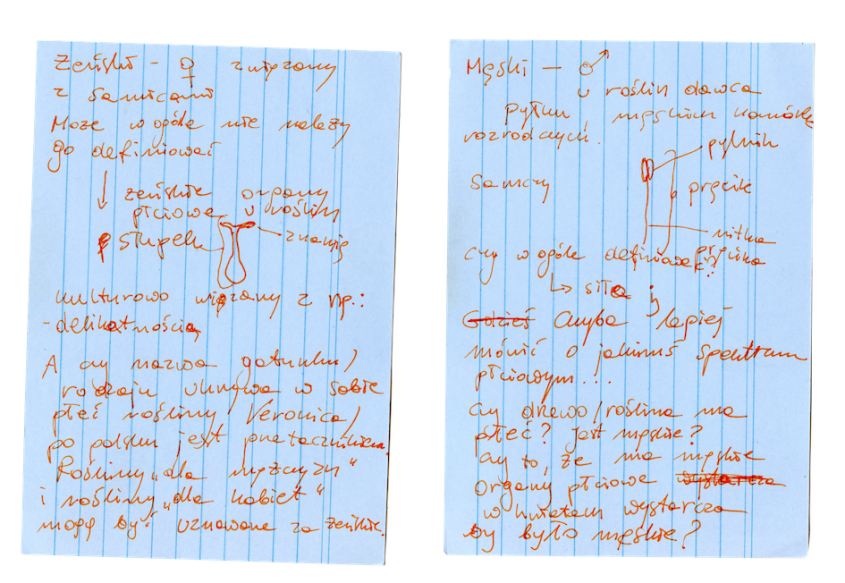 Żeński - ♀ związany
z samicami
Może w ogóle nie należy
go definiować
↓ żeńskie organy
płciowe u roślin
słupek
znamię
kulturowo wiązany z np.:
- delikatnością
A czy nazwa gatunku/
rodzaju ukrywa w sobie
płeć rośliny Veronica/
po polsku jest
Rośliny „dla mężczyzn"
i rośliny „dla kobiet"
mogą być uznawane za żeńskie.
Męski - ♂
u roślin dawca
pyłku, męskich komórek
rozrodczych.
pylnik
Samczy
pręcik
nitka
pręcika
czy w ogóle definiować?
↳ siła
Gdzieś Chyba lepiej
mówić o jakimś spektrum
płciowym...
Czy drzewo/roślina ma
płeć? Jest męskie?
Czy to, że ma męskie
organy płciowe wystarcza
w kwiatach wystarcza
by było męskie?